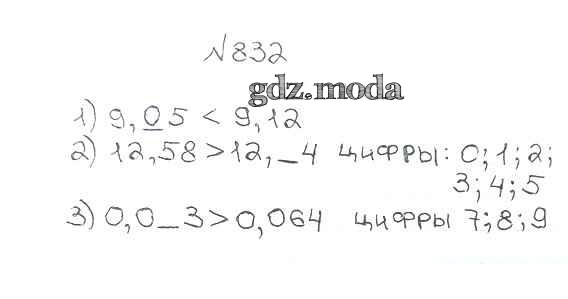 №832
gdz.moda
1) 9,05 < 9,12
2) 12,58>12,_4 цифры: 0;1;2;
3;4;5
3) 0,0_3>0,064 цифры 7;8;9